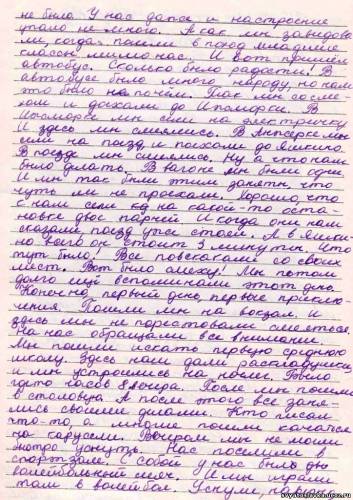 не было. У нас даже и настроение
упало не много. А как мы завидова
ли, когда пошли в поход младшие
классы мимо нас. И вот пришёл
автобус. Сколько было радости! В
автобусе было много народу, но нам
это было не почём. Так мы со сме-
хом и доехали до Ижморки. В
Ижморке мы сели на электричку
И здесь мы смеялись. В Анжерке мы
сели на поезд и поехали до Яшкино.
В поезде мы смеялись. Ну а что нам
было делать. В вагоне мы были одни.
И мы так были этим заняты, что
чуть ли не проехали. Хорошо, что
к нам сели на какой-то оста-
новке двое парней. И когда они нам
сказали, поезд уже стоял. А в Яшки-
но всего он стоит 3 минуты. Что
тут было! Все повскакали со своих
мест. Вот было смеху! Мы потом
долго ещё вспоминали этот день.
Конечно первый день, первые приклю-
чения. Пошли мы на вокзал. И
здесь мы не перестовали смеяться.
На нас обращали все внимание.
Мы пошли искать первую среднюю
школу. Здесь нам дали раскладушки,
и мы устроились на ночь. Было
где-то часов 8 вечера. После мы пошли
в столовую. А после этого все заня-
лись своими делами. Кто писал
что-то, а многие пошли качаться
на карусели. Вечером мы не могли
долго уснуть. Нас поселили в
спортзале. С собой у нас был
волейбольный мяч. И мы играли
там в волейбол. Уснули первого